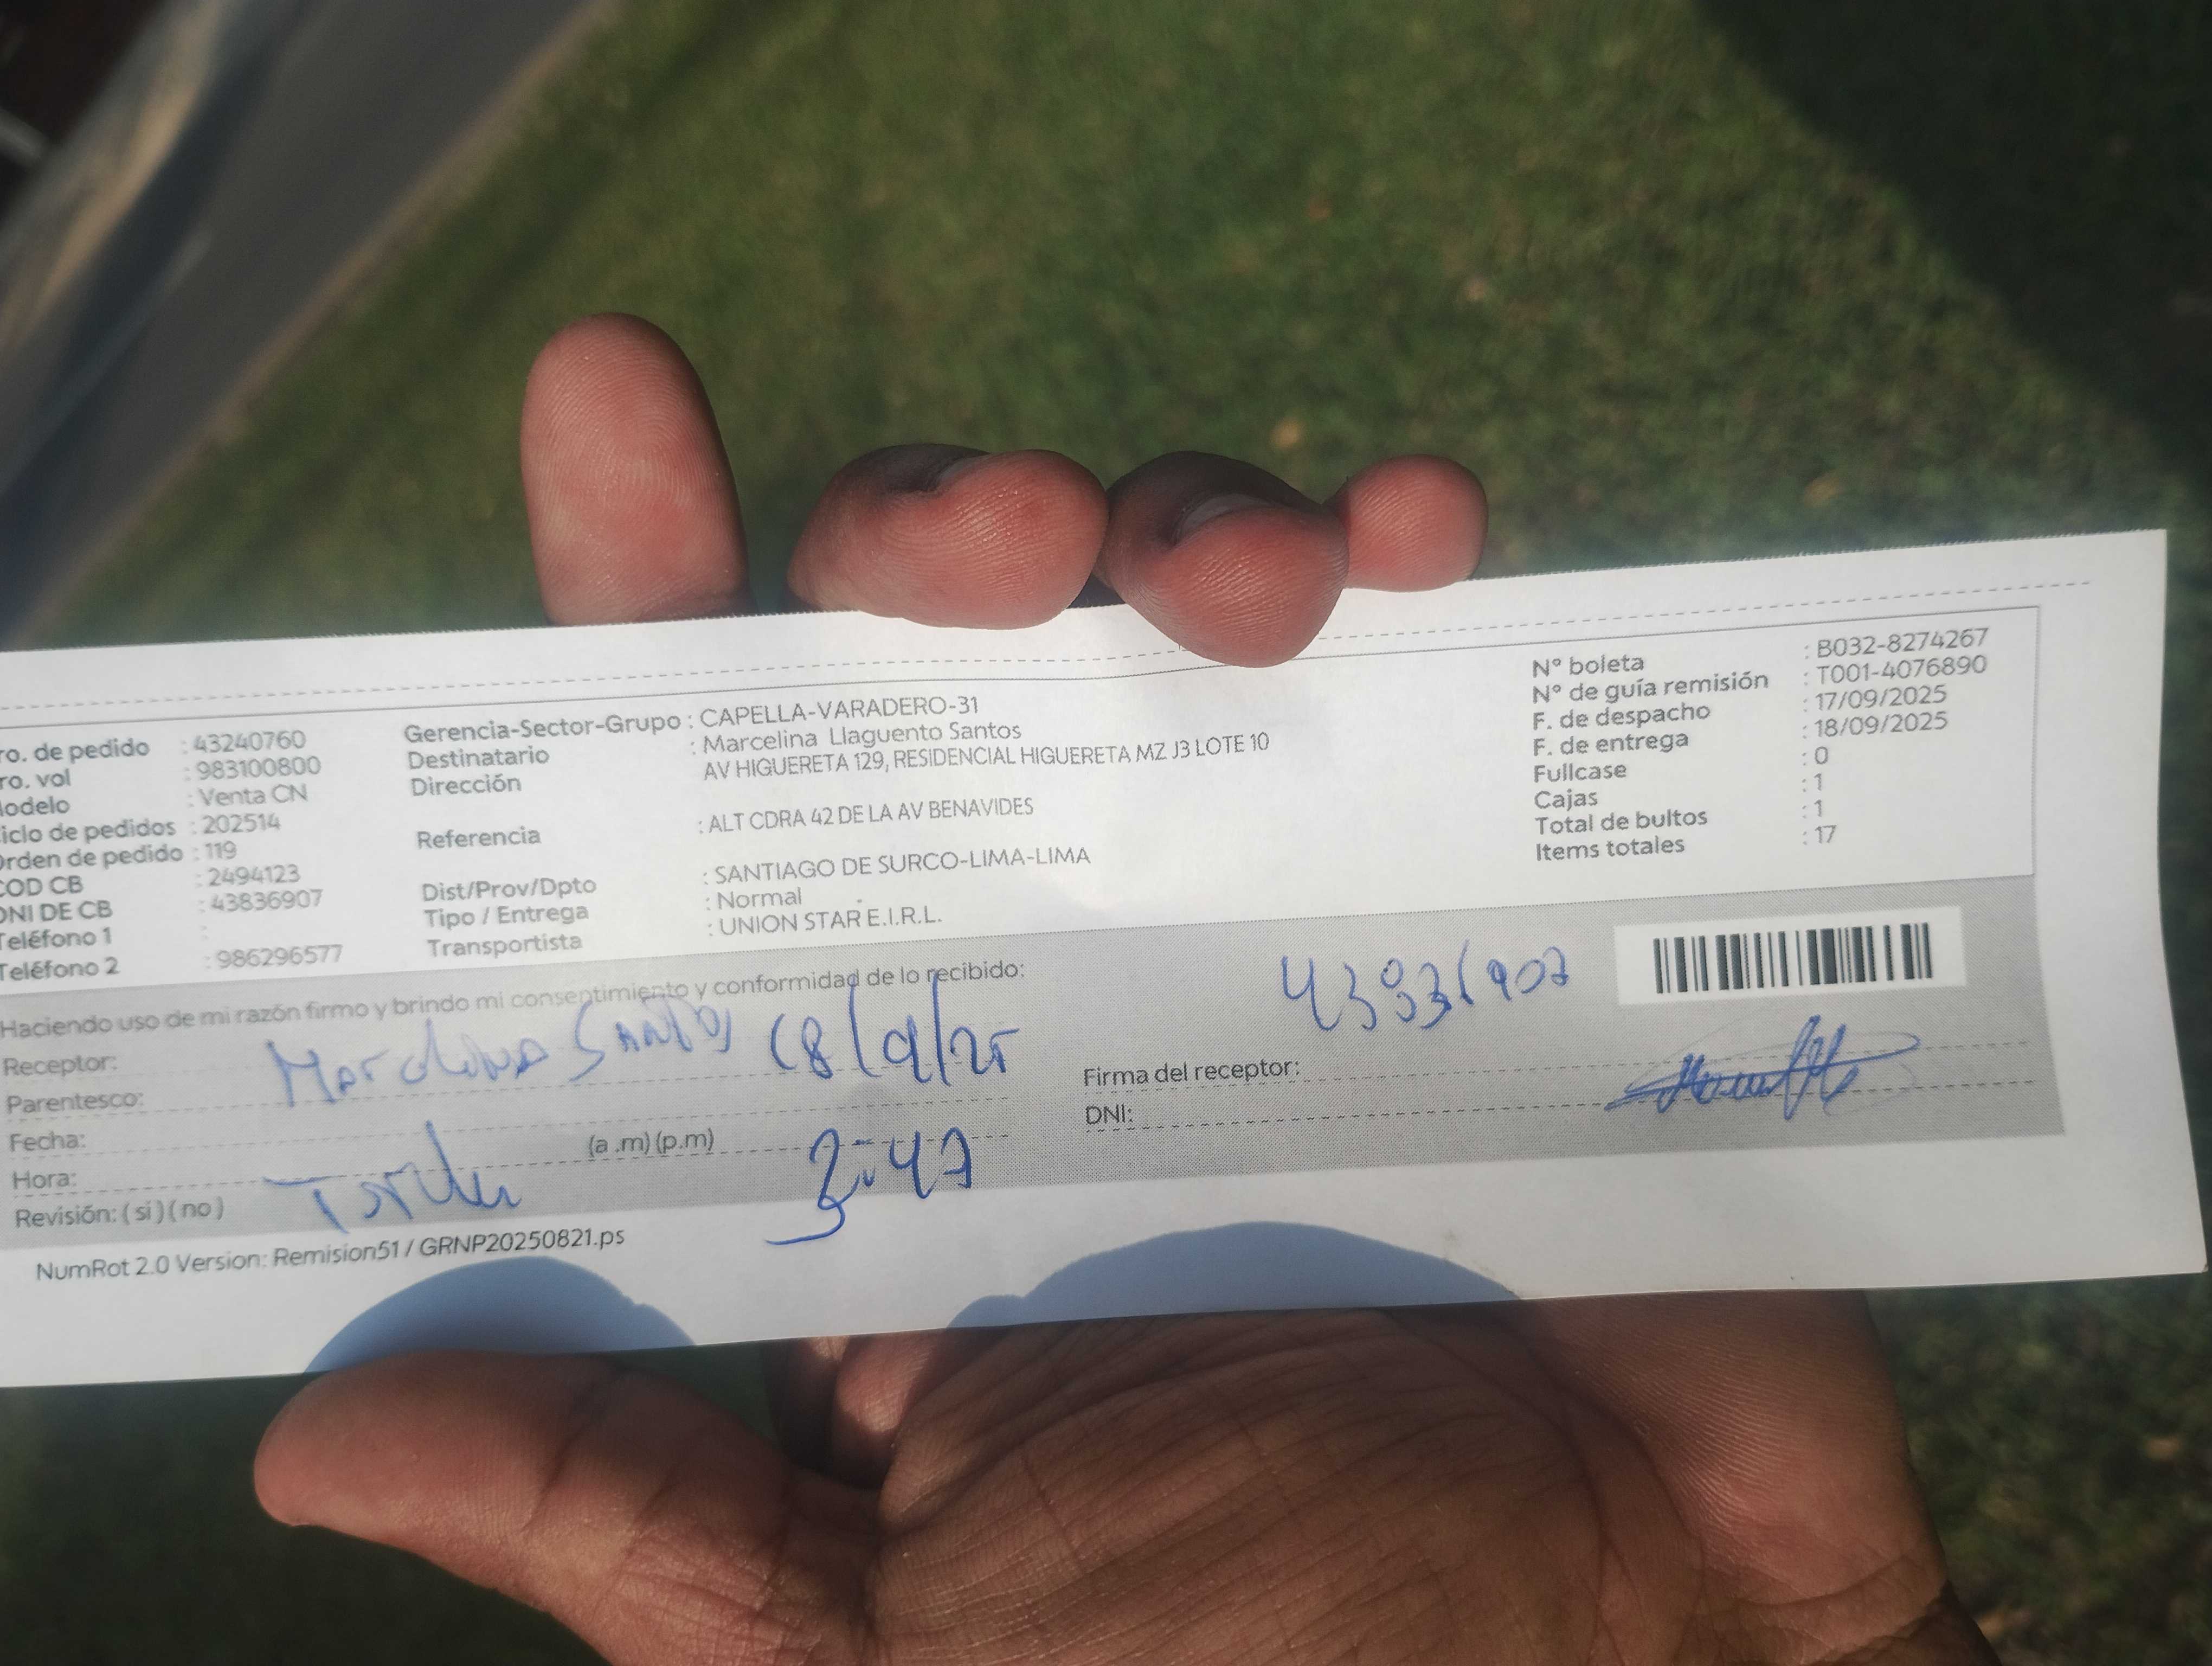 ro. de pedido : 43240760
ro. vol : 983100800
odelo : Venta CN
iclo de pedidos : 202514
Orden de pedido : 119
COD CB : 2494123
DNI DE CB : 43836907
Teléfono 1 :
Teléfono 2 : 986296577
Gerencia-Sector-Grupo : CAPELLA-VARADERO-31
Destinatario : Marcelina Llaguento Santos
Dirección AV HIGUERETA 129, RESIDENCIAL HIGUERETA MZ J3 LOTE 10
Referencia : ALT CDRA 42 DE LA AV BENAVIDES
Dist/Prov/Dpto : SANTIAGO DE SURCO-LIMA-LIMA
Tipo / Entrega : Normal
Transportista : UNION STAR E.I.R.L.
N° boleta : B032-8274267
N° de guía remisión : T001-4076890
F. de despacho : 17/09/2025
F. de entrega : 18/09/2025
Fullcase : 0
Cajas : 1
Total de bultos : 1
Items totales : 17
Haciendo uso de mi razón firmo y brindo mi consentimiento y conformidad de lo recibido:
Receptor: Marcelina Santos 18/9/25
Parentesco:
Fecha:
Hora: (a .m) (p.m) 3:47
Revisión: ( si ) ( no )
Firma del receptor:
DNI:
NumRot 2.0 Version: Remision51 / GRNP20250821.ps